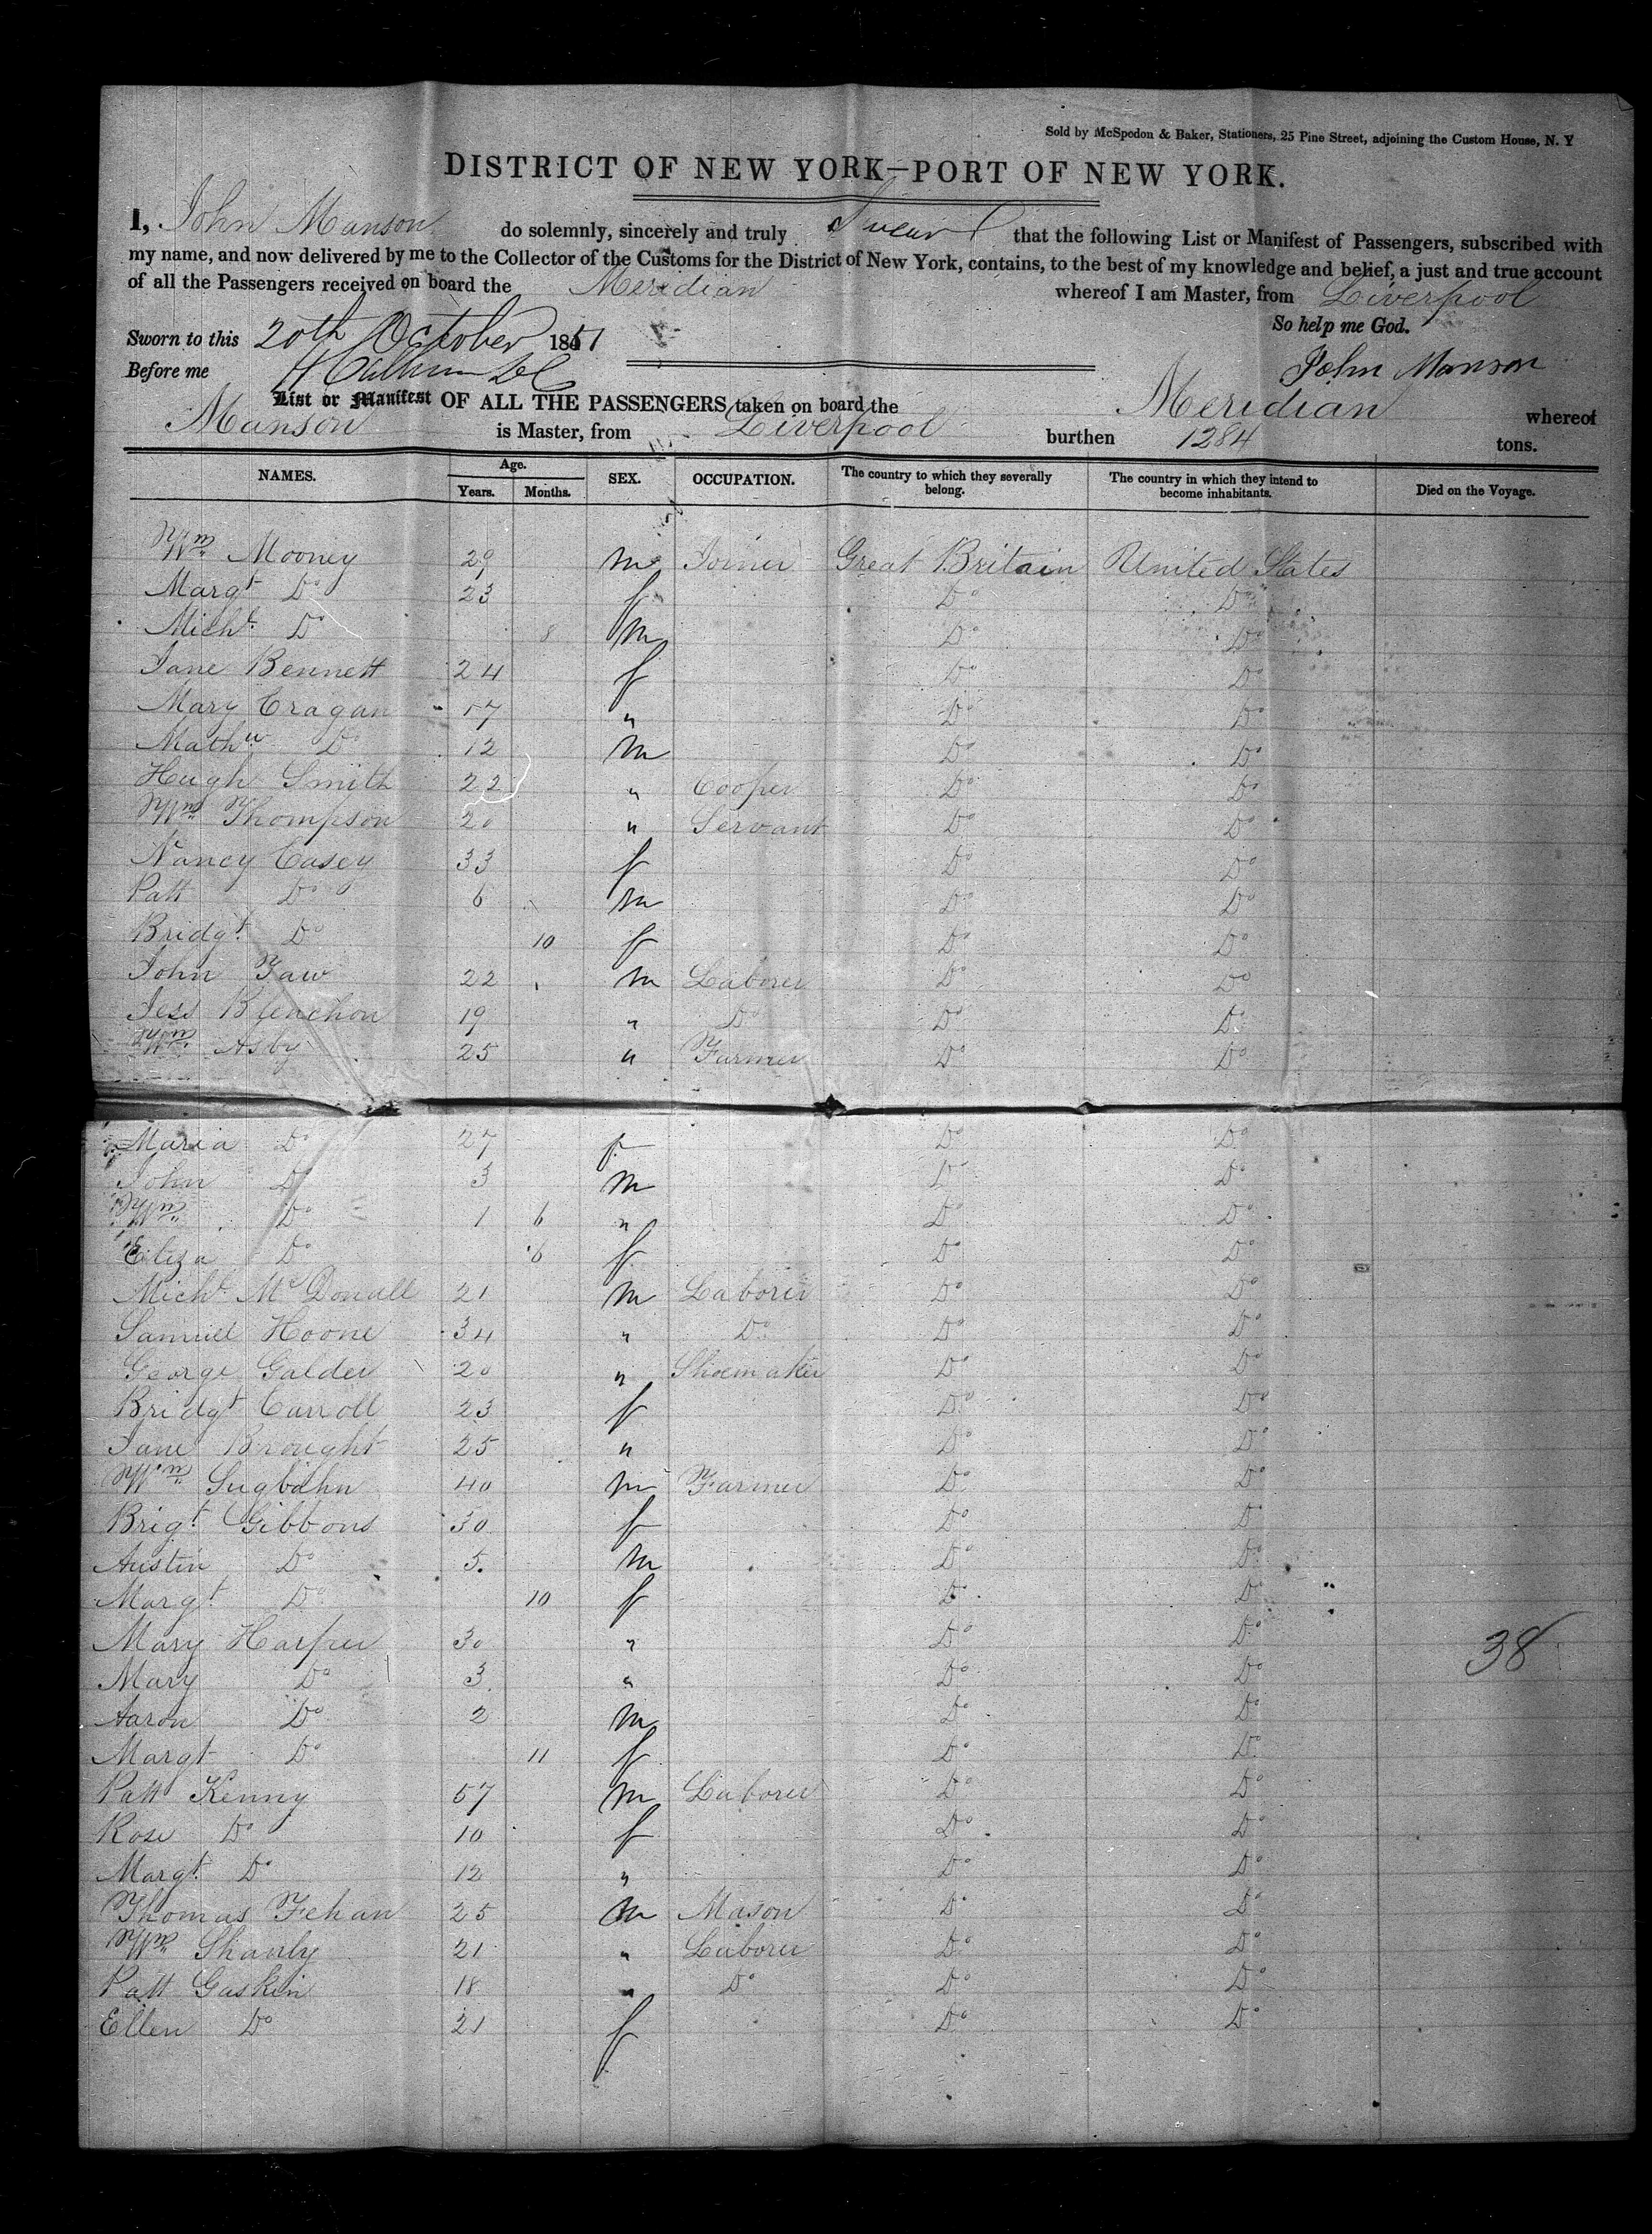 Sold by McSpedon & Baker, Stationers, 25 Pine Street, adjoining the Custom House, N. Y
DISTRICT OF NEW YORK—PORT OF NEW YORK.
I, John Manson do solemnly, sincerely and truly Swear that the following List or Manifest of Passengers, subscribed with
my name, and now delivered by me to the Collector of the Customs for the District of New York, contains, to the best of my knowledge and belief, a just and true account
of all the Passengers received on board the Meridian whereof I am Master, from Liverpool
So help me God.
Sworn to this 20th October 1851
Before me John Manson
List or Manifest OF ALL THE PASSENGERS taken on board the Meridian whereof
Manson is Master, from Liverpool burthen 1284 tons.
NAMES. Age. Years. Months. SEX. OCCUPATION. The country to which they severally belong. The country in which they intend to become inhabitants. Died on the Voyage.
Wm Mooney 29 m Joiner Great Britain United States
Margt Do 23 f Do Do
Michl Do 8 m Do Do
Jane Bennett 24 f Do Do
Mary Cragan 57 " Do Do
Mathw Do 12 m Do Do
Hugh Smith 22 " Cooper Do Do
Wm Thompson 20 " Servant Do Do
Nancy Casey 33 f Do Do
Patt Do 6 m Do Do
Bridgt Do 10 f Do Do
John Faw 22 m Laborer Do Do
Jess 19 " Do Do Do
Wm Asby 25 " Farmer Do Do
Maria Do 27 f Do Do
John Do 3 m Do Do
Wm Do 1 6 " Do Do
Eliza Do 6 f Do Do
Michl McDonall 21 m Laborer Do Do
Samuel Hoone 34 " Do Do Do
George Galder 20 " Shoemaker Do Do
Bridgt Carroll 23 f Do Do
Jane Brought 25 " Do Do
Wm 40 m Farmer Do Do
Brigt Gibbons 30 f Do Do
Austin Do 5 m Do Do
Margt Do 10 f Do Do
Mary Harper 30 " Do Do 38
Mary Do 3 " Do Do
Aaron Do 2 m Do Do
Margt Do 11 f Do Do
Patt Kenny 57 m Laborer Do Do
Rose Do 10 f Do Do
Margt Do 12 " Do Do
Thomas Fehan 25 m Mason Do Do
Wm Shanly 21 " Laborer Do Do
Patt Gaskin 18 " Do Do Do
Ellen Do 21 f Do Do